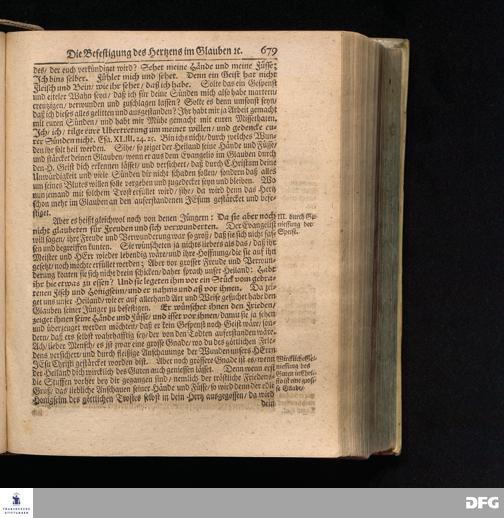 Die Befestigung des Hertzens im Glauben ꝛc. 679
des/ der euch verkündiget wird? Sehet meine Hände und meine Füsse;
Ich bins selber. Fühlet mich und sehet. Denn ein Geist hat nicht
Fleisch und Bein/ wie ihr sehet/ daß ich habe. Solte das ein Gespenst
und eiteler Wahn seyn/ daß ich für deine Sünden mich also habe martern/
creutzigen/ verwunden und zuschlagen lassen? Solte es denn umsonst seyn/
daß ich dieses alles gelitten und ausgestanden? Ihr habt mir ja Arbeit gemacht
mit euren Sünden/ und habt mir Mühe gemacht mit euren Missethaten.
Ich/ ich/ tilge eure Ubertretung um meinet willen/ und gedencke eu-
rer Sünden nicht. Esa. XLIII, 24. 25. Bin ichs nicht/ durch welches Wun-
den ihr solt heil werden. Sihe/ so zeiget der Heiland seine Hände und Füsse/
und stärcket deinen Glauben/ wenn er aus dem Evangelio im Glauben durch
den H. Geist dich erkennen lässet/ und versichert/ daß durch Christum deine
Unwürdigkeit und viele Sünden dir nicht schaden sollen/ sondern daß alles
um seines Blutes willen solle vergeben und zugedecket seyn und bleiben. Wo
nun jemand mit solchem Trost erfüllet wird/ sihe/ da wird denn das Hertz
schon mehr im Glauben an den auferstandenen JEsum gestärcket und befe-
stiget.
Aber es heißt gleichwol noch von denen Jüngern: Da sie aber noch
nicht glaubeten für Freuden und sich verwunderten. Der Evangelist
will sagen/ ihre Freude und Verwunderung war so groß/ daß sie sich nicht fas-
sen und begreiffen kunten. Sie wünscheten ja nichts liebers als das/ daß ihr
Meister und HErr wieder lebendig wäre/ und ihre Hoffnung/ die sie auf ihn
gesetzt/ noch möchte erfüllet werden; Aber vor grosser Freude und Verwun-
derung konten sie sich nicht drein schicken/ daher sprach unser Heiland: Habt
ihr hie etwas zu essen? Und sie legeten ihm vor ein Stück vom gebra-
tenen Fisch und Honigseim/ und er nahms und aß vor ihnen. Da zei-
get uns unser Heiland/ wie er auf allerhand Art und Weise gesuchet habe den
Glauben seiner Jünger zu befestigen. Er wünschet ihnen den Frieden/
zeiget ihnen seine Hände und Füsse/ und isset vor ihnen/ damit sie ja sehen
und überzeuget werden möchten/ daß er kein Gespenst noch Geist wäre/ son-
dern/ daß ers selbst wahrhafftig sey/ der von den Todten auferstanden wäre.
Ach/ lieber Mensch/ es ist zwar eine grosse Gnade/ wo du des göttlichen Frie-
dens versichert/ und durch fleissige Anschauung der Wunden unsers HErrn
JEsu Christi gestärcket worden bist. Aber noch grössere Gnade ist es/ wenn
der Heiland dich würcklich des Guten auch geniessen lässet. Denn wenn erst
die Stuffen vorher bey dir gegangen sind/ nemlich der tröstliche Friedens-
Gruß/ das liebliche Anschauen seiner Hände und Füsse/ so wird denn der edle
Honigseim des göttlichen Trostes selbst in dein Hertz ausgegossen/ da wird
dein
III. durch Ge-
niessung der
Speise.
Würckliche Ge-
niessung des
Guten
ist eine gros-
se Gnade/
FRANCKESCHE
STIFTUNGEN
DFG